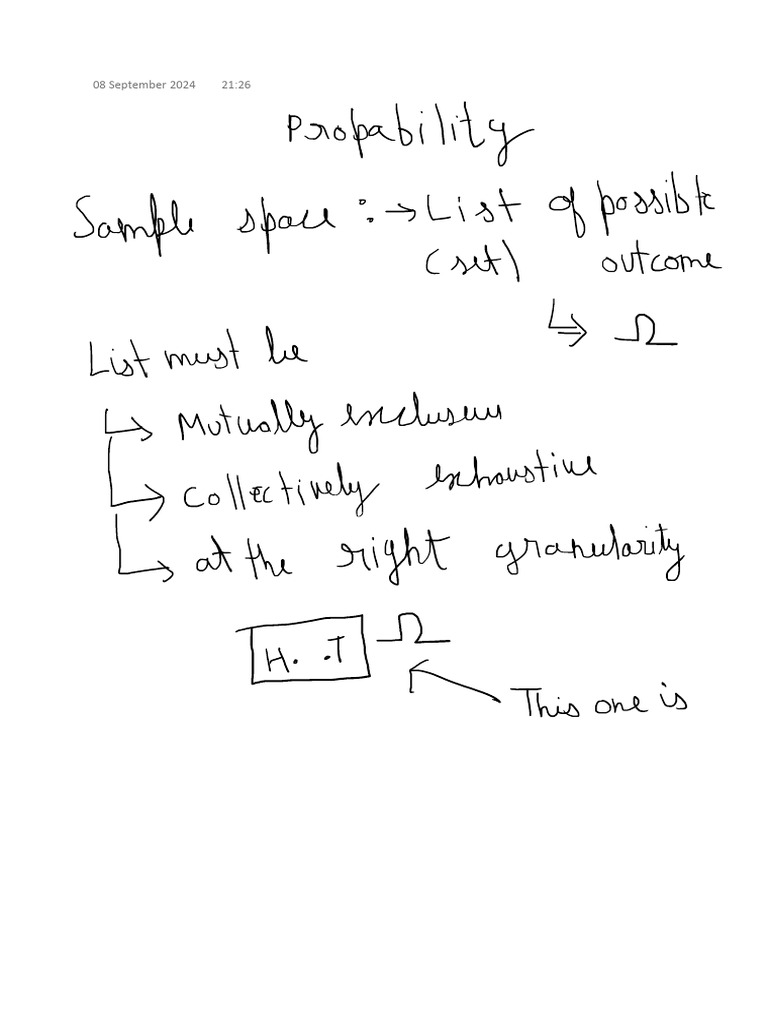 08 September 2024 21:26
Propability
Sample space :→ List of possible
(set) outcome
↳ Ω
List must be
↳ Mutually exclusive
↳ Collectively exhaustive
↳ at the right granularity
H. .T Ω
This one is